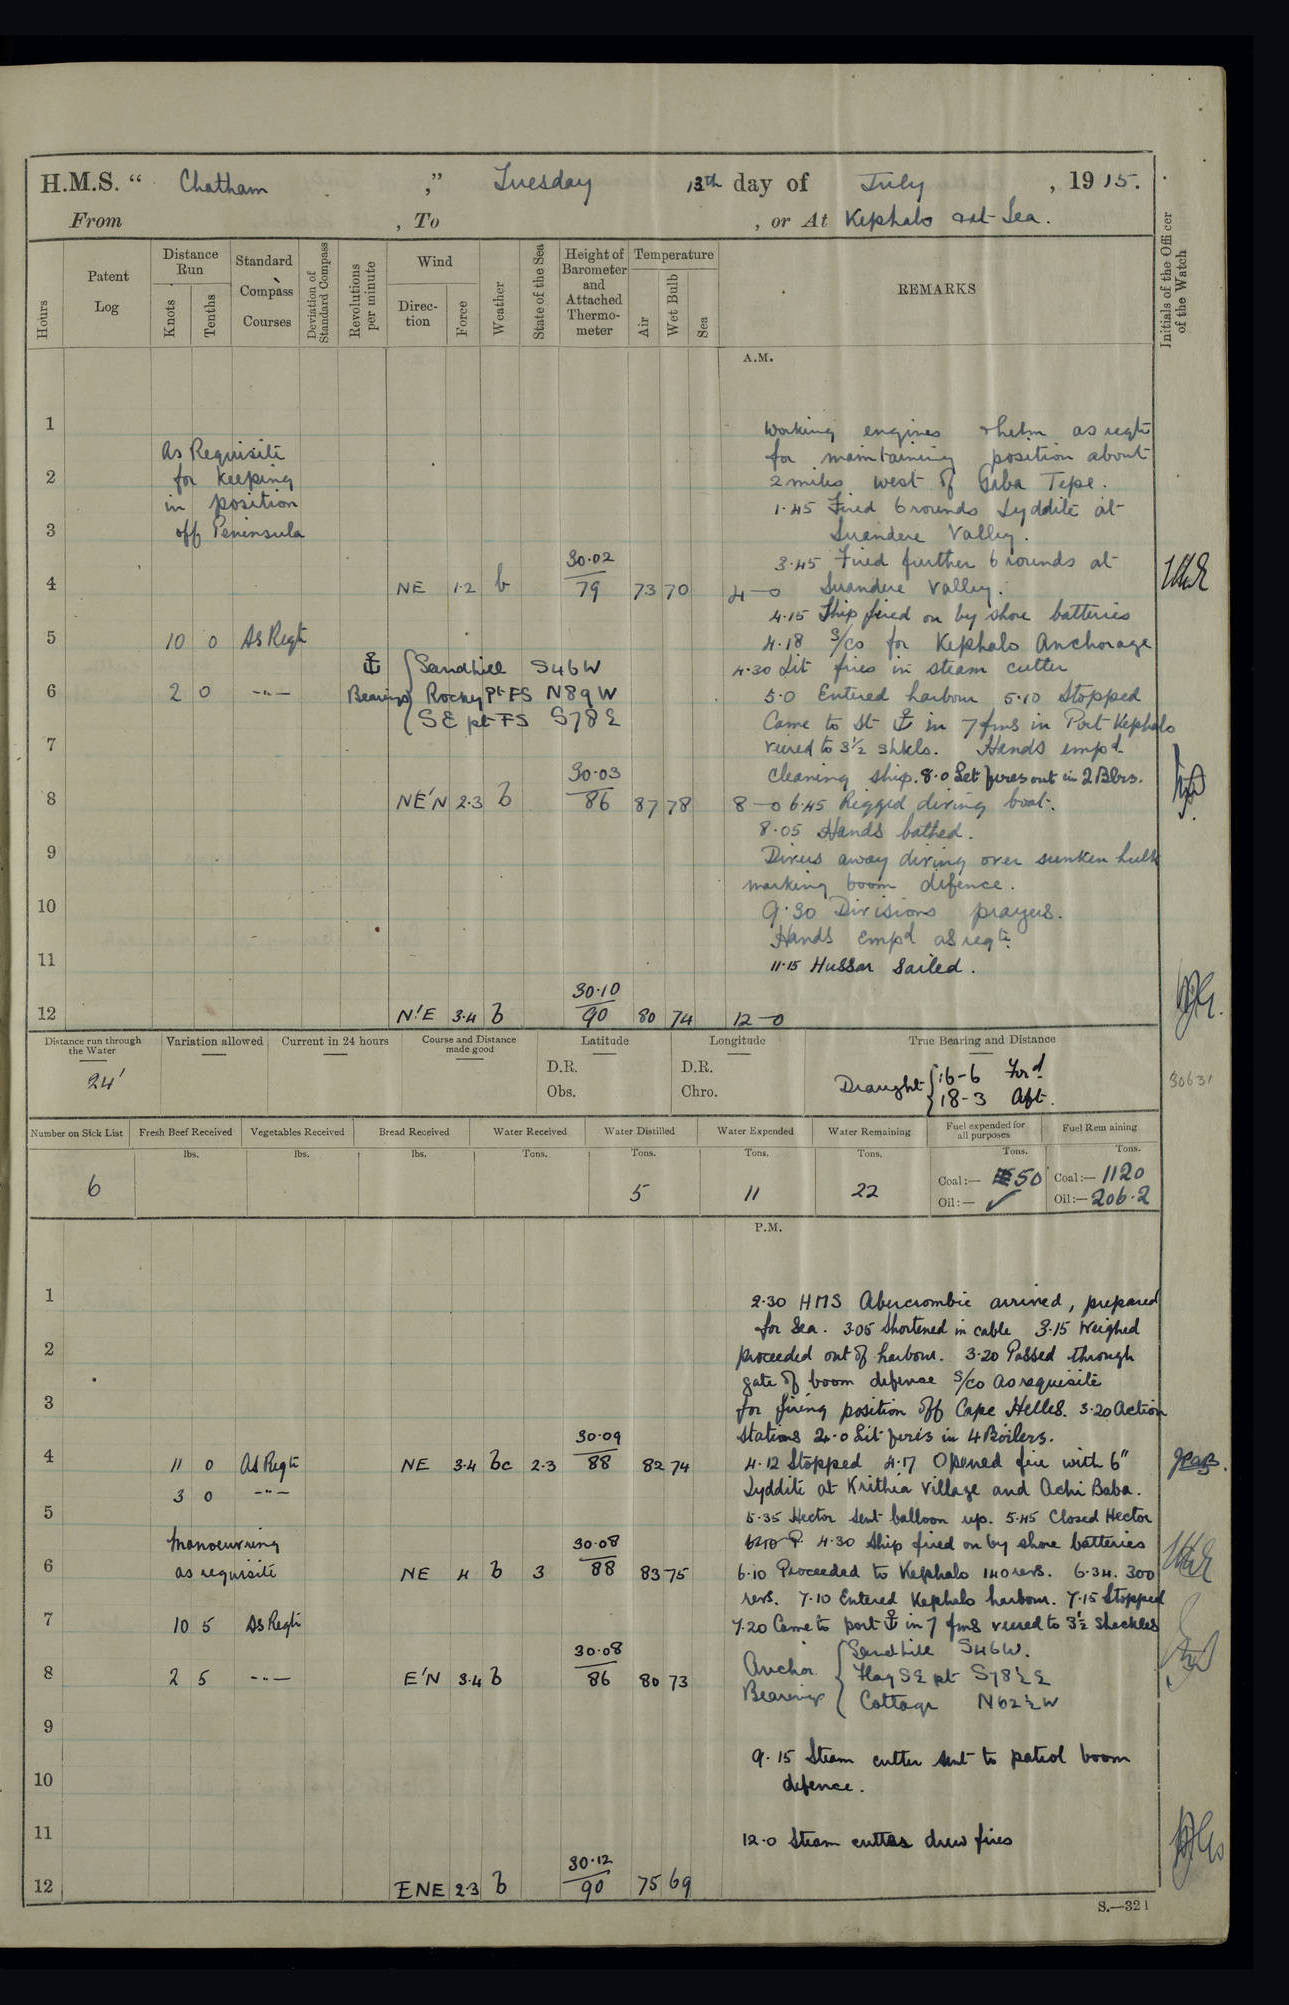 H.M.S. “ Chatham ,” Tuesday 13th day of July , 1915.
From , To , or At Kephalo & at Sea.
Hours
Patent Log
Distance Run
Knots
Tenths
Standard Compass Courses
Deviation of Standard Compass
Revolutions per minute
Wind
Direction
Force
Weather
State of the Sea
Height of Barometer and Attached Thermometer
Temperature
Air
Wet Bulb
Sea
REMARKS
Initials of the Officer of the Watch
A.M.
1 Working engines & helm as reqte
As Requisite for maintaining position about
2 for keeping 2 miles west of Gaba Tepe.
in position 1.45 Fired 6 rounds Lyddite at
3 off Peninsula Suandere Valley.
30.02 3.45 Fired further 6 rounds at
4 NE 1.2 b 79 73 70 4—0 Suandere Valley.
4.15 Ship fired on by shore batteries
5 10 0 As Reqte 4.18 S/co for Kephalo Anchorage
Sandhill S46W 4.30 Lit fires in steam cutter
6 2 0 —"— Bearings Rocky Pt FS N89W 5.0 Entered harbour 5.10 Stopped
SE pt FS S78E Came to St ⚓ in 7 fms in Port Kephalo
7 veered to 3½ shkls. Hands empd
30.03 cleaning ship. 8.0 Let fires out in 2 Blrs.
8 NE'N 2.3 b 86 87 78 8—0 6.45 Rigged diving boat.
8.05 Hands bathed.
9 Divers away diving over sunken hulk
marking boom defence.
10 9.30 Divisions prayers.
Hands empd as reqte.
11 11.15 Hussar sailed.
30.10
12 N'E 3.4 b 90 80 74 12—0
Distance run through the Water
24'
Variation allowed
Current in 24 hours
Course and Distance made good
Latitude
D.R.
Obs.
Longitude
D.R.
Chro.
True Bearing and Distance
Draught 16-6 Ford
18-3 Aft.
30631
Number on Sick List Fresh Beef Received Vegetables Received Bread Received Water Received Water Distilled Water Expended Water Remaining Fuel expended for all purposes Fuel Remaining
lbs. lbs. lbs. Tons. Tons. Tons. Tons. Tons. Tons.
6 5 11 22 Coal:— 50 Coal:— 1120
Oil:— ✓ Oil:— 206.2
P.M.
1 2.30 HMS Abercrombie arrived, prepared
for Sea. 3.05 Shortened in cable 3.15 Weighed
2 proceeded out of harbour. 3.20 Passed through
gate of boom defence S/co As requisite
3 for firing position off Cape Helles. 3.20 Action
30.09 Stations 2.0 Lit fires in 4 Boilers.
4 11 0 As Reqte NE 3.4 bc 2.3 88 82 74 4.12 Stopped 4.17 Opened fire with 6"
3 0 —"— Lyddite at Krithia Village and Achi Baba.
5 5.35 Hector sent balloon up. 5.45 Closed Hector
Manoeuvring 30.08 4.30 Ship fired on by shore batteries
6 as requisite NE 4 b 3 88 83 75 6.10 Proceeded to Kephalo 140 revs. 6.34. 300
revs. 7.10 Entered Kephalo harbour. 7.15 Stopped
7 10 5 As Reqte 7.20 Came to port ⚓ in 7 fms veered to 3½ shackles
30.08 Anchor Sandhill S46W.
8 2 5 —"— E'N 3.4 b 86 80 73 Bearings Flag SE pt S78½E
Cottage N62½W
9
9.15 Steam cutter sent to patrol boom
10 defence.
11 12.0 Steam cutter drew fires
30.12
12 ENE 2.3 b 90 75 69
S.—321